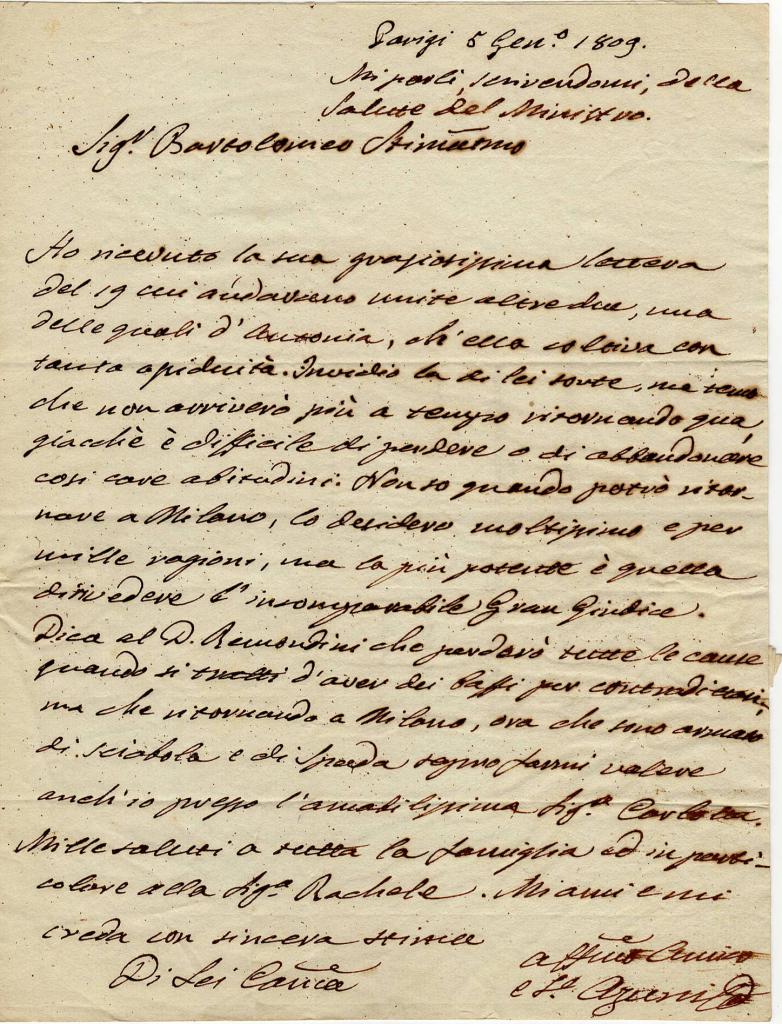 Parigi 5 Gen.º 1809.
Mi parli, scrivendomi, della
salute del Ministro.
Sig.r Bartolomeo Stimatmo
Ho ricevuto la sua graziosissima lettera
del 19 cui andavano unite altre due, una
delle quali d'Antonia, ch'ella coltiva con
tanta assiduità. Invidio la di lei sorte, ma temo
che non arriverò più a tempo ritornando qua,
giacchè è difficile di perdere o di abbandonare
così care abitudini. Non so quando potrò ritor-
nare a Milano, lo desidero moltissimo e per
mille ragioni, ma la più potente è quella
di rivedere l'incomparabile Gran Giudice.
Dica al D. Remondini che perderò tutte le cause
quando si tratti d'aver dei baffi per
ma che ritornando a Milano, ora che sono armato
di sciabola e di spada saprò farmi valere
anch'io presso l'amabilissima Sig.a Carlotta.
Mille saluti a tutta la famiglia ed in parti-
colare alla Sig.a Rachele. Mi ami e mi
creda con sincera stima
Di Lei
affmo Amico
e S.e